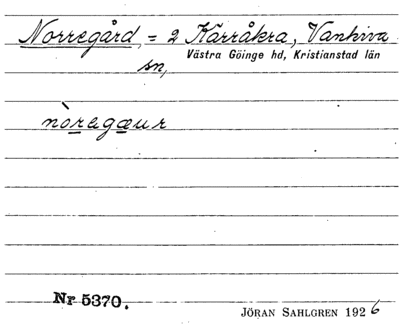 Norregård, = 2 Kärråkra, Vankiva
Västra Göinge hd, Kristianstad län
sn,
nòregæur
Nr 5370.
JÖRAN SAHLGREN 1926